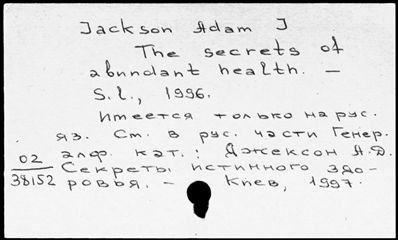 Jackson Adam J
The secrets of
abundant health. —
S.l., 1996.
Имеется только на рус.
яз. См. в рус. части Генер.
алф. кат.: Джексон А.Д.
02
38152
Секреты истинного здо-
ровья. — Киев, 1997.